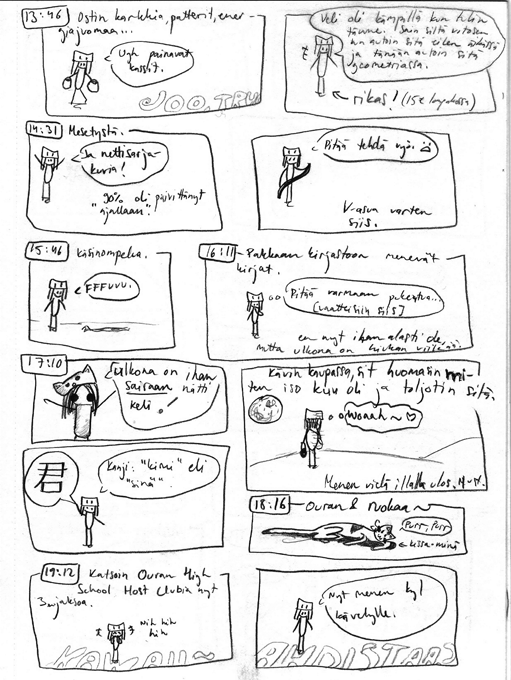 13:46 Ostin karkkia, patterit, ener-
giajuomaa...
Ugh painavat
kassit.
JOO, TRU
Veli oli kämpillä kun tulin
tänne. Sain siltä
ja tänään autoin sitä
geometriassa.
rikas! (15€
14:31 Mesetystä.
Ja nettisarja-
kuvia!
90% oli päivittänyt
"ajallaan".
Pitää tehdä vyö.
V-asua varten
siis.
15:46 Käsinompelua.
FFFUUU.
16:11 Pakkaan kirjastoon menevät
kirjat.
Pitää varmaan pukeutua...
(vaatteisiin siis)
en nyt ihan alasti ole
mutta ulkona on hiukan viileää.
17:10
Ulkona on ihan
sairaan nätti
keli!
Kävin kaupassa, sit huomasin mi-
ten iso kuu oli ja tuijotin sitä.
Woaah~
Menen vielä illalla ulos.
君
Kanji: "kimi" eli
"sinä".
18:16 Ouran & ruokaa~
Purr, Purr
kissa-minä
19:12 Katsoin Ouran High
School Host Clubia nyt
3 jaksoa.
Nih hih
hih
KAWAII~
Nyt menen kyl
kävelylle.
AHDISTAAS